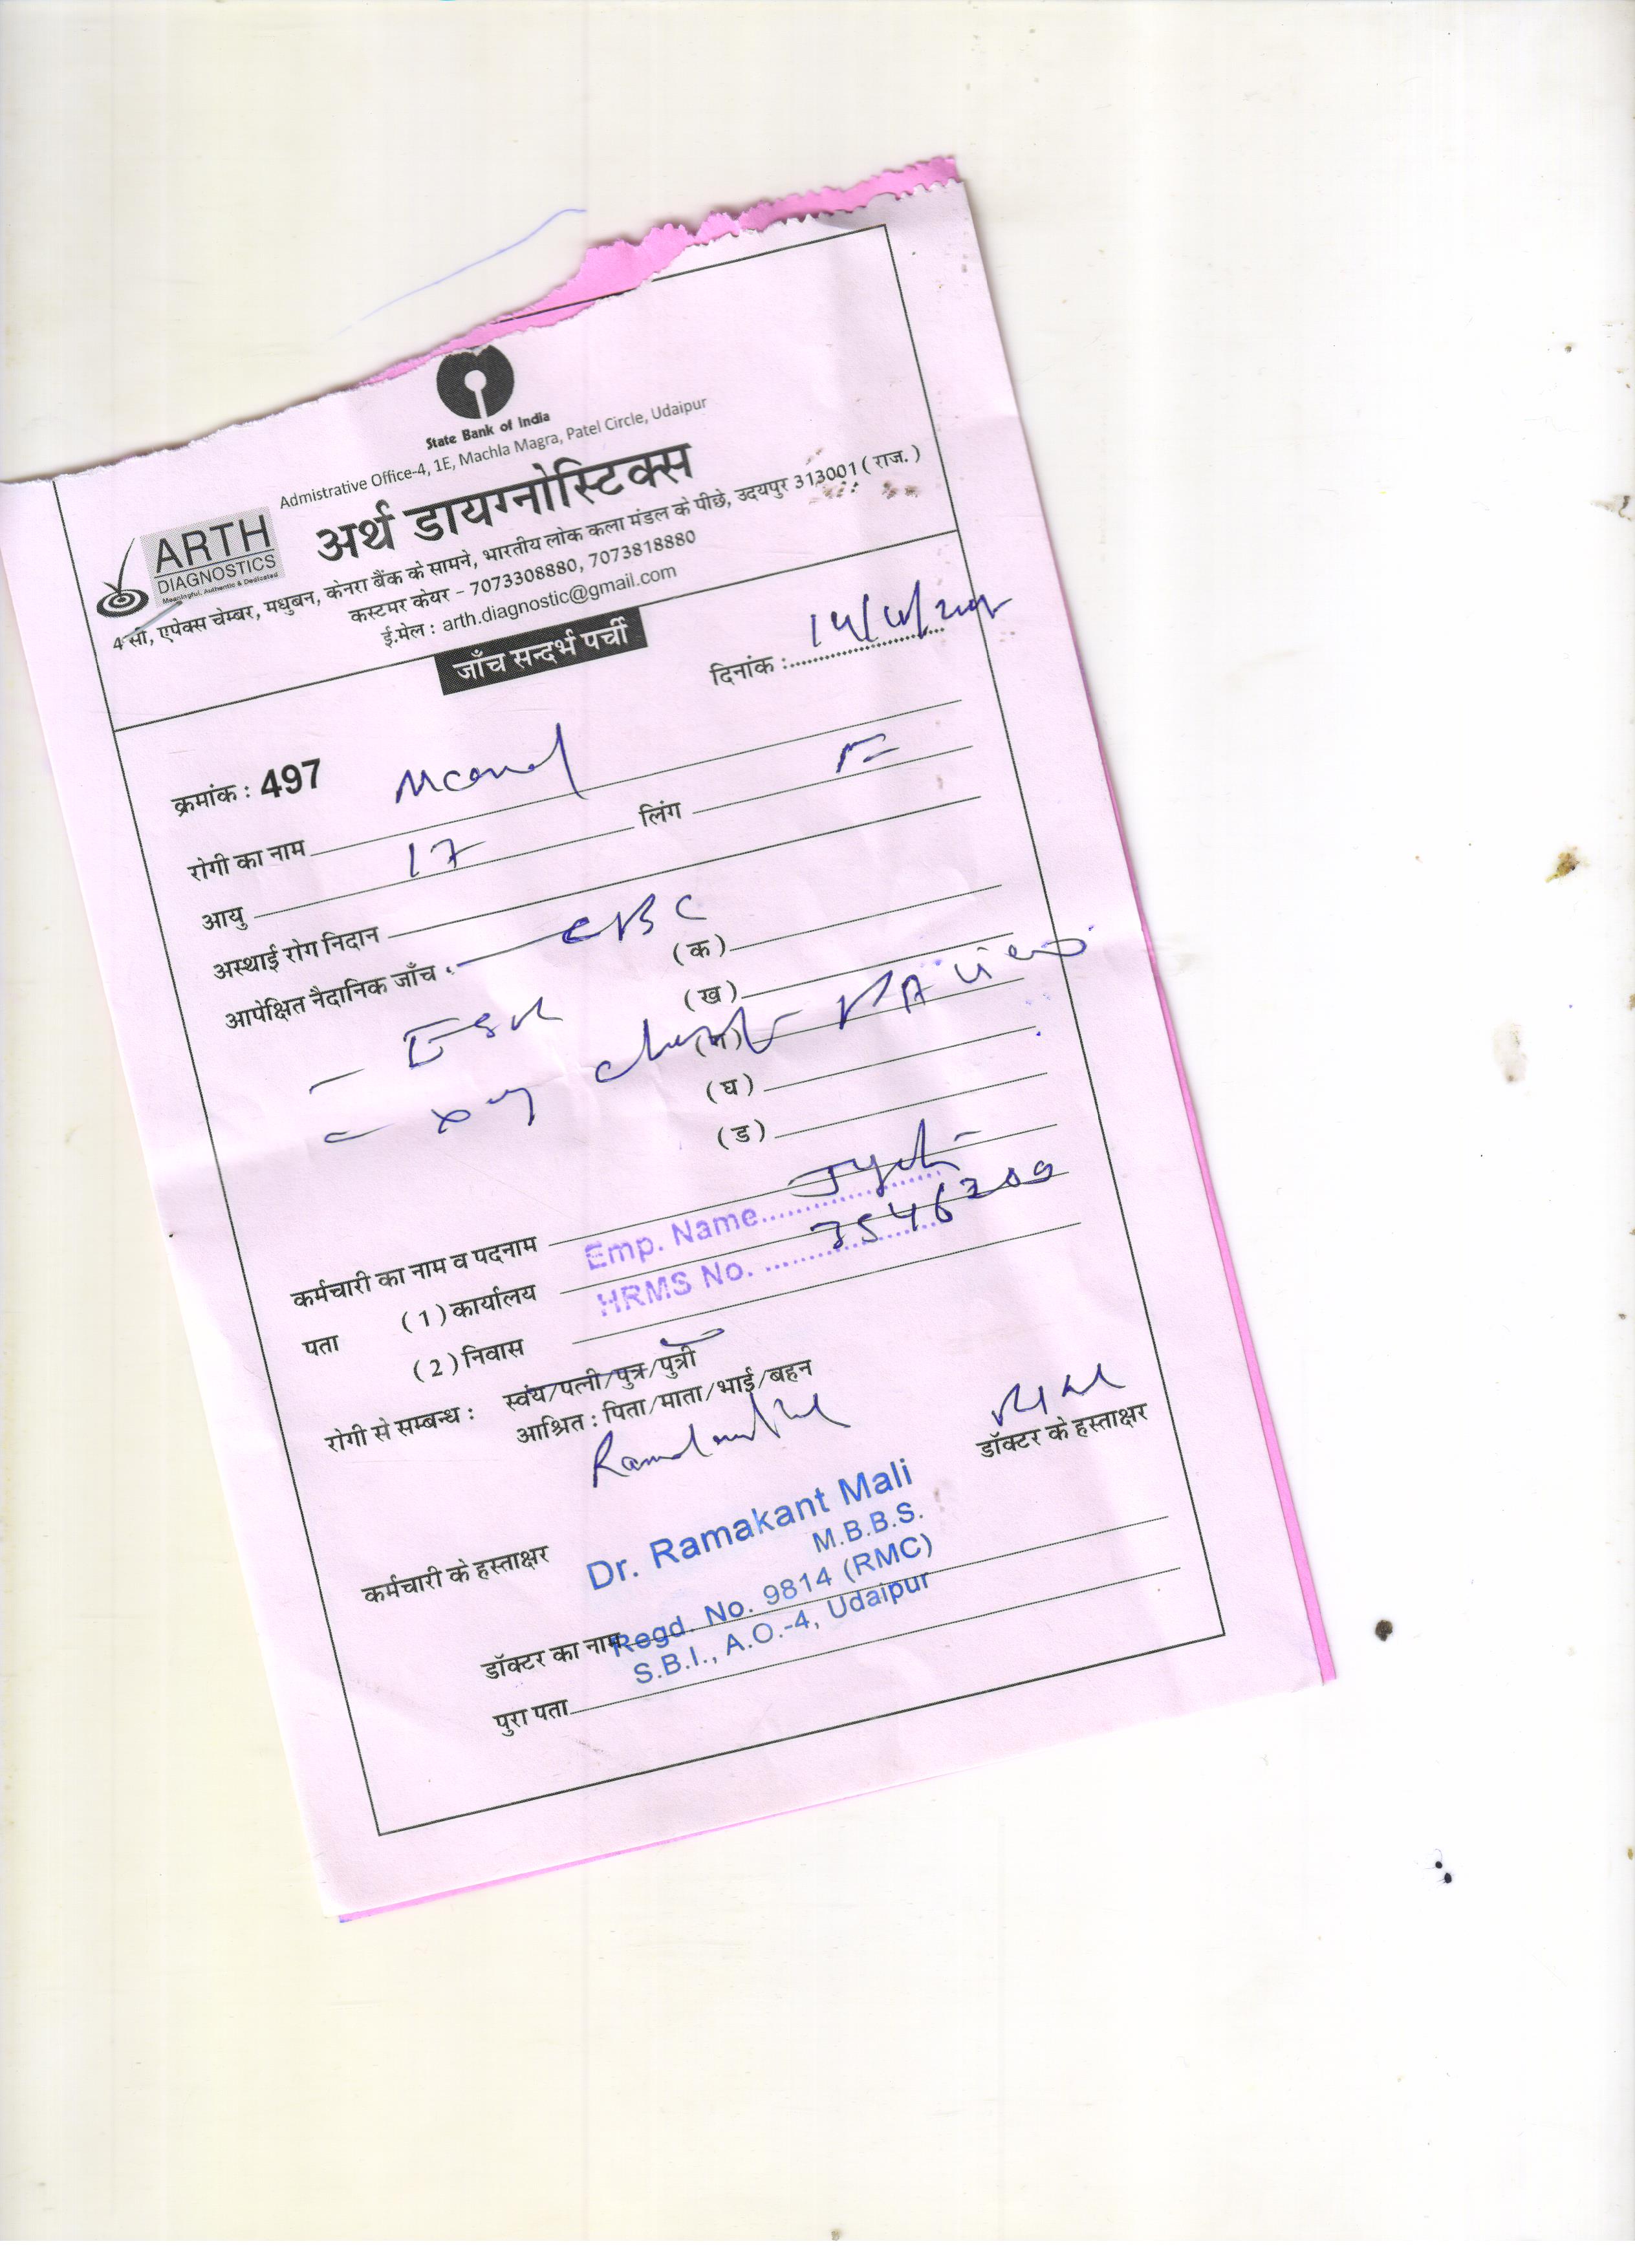 State Bank of India
Admistrative Office-4, 1E, Machla Magra, Patel Circle, Udaipur
ARTH
DIAGNOSTICS
Meaningful, Authentic & Dedicated
अर्थ डायग्नोस्टिक्स
4 सी, एपेक्स चेम्बर, मधुबन, केनरा बैंक के सामने, भारतीय लोक कला मंडल के पीछे, उदयपुर 313001 ( राज. )
कस्टमर केयर – 7073308880, 7073818880
ई.मेल : arth.diagnostic@gmail.com
जाँच सन्दर्भ पर्ची
दिनांक :
क्रमांक : 497
रोगी का नाम
आयु 17 लिंग F
अस्थाई रोग निदान
आपेक्षित नैदानिक जाँच : CBC (क)
(ख)
- ESR
(ग)
- chest PA view
(घ)
(ड)
कर्मचारी का नाम व पदनाम Emp. Name Jyoti
पता ( 1 ) कार्यालय HRMS No. 7546200
( 2 ) निवास
रोगी से सम्बन्ध : स्वंय/पत्नी/पुत्र/पुत्री
आश्रित : पिता/माता/भाई/बहन
डॉक्टर के हस्ताक्षर
कर्मचारी के हस्ताक्षर
Dr. Ramakant Mali
M.B.B.S.
डॉक्टर का नाम Regd. No. 9814 (RMC)
S.B.I., A.O.-4, Udaipur
पुरा पता